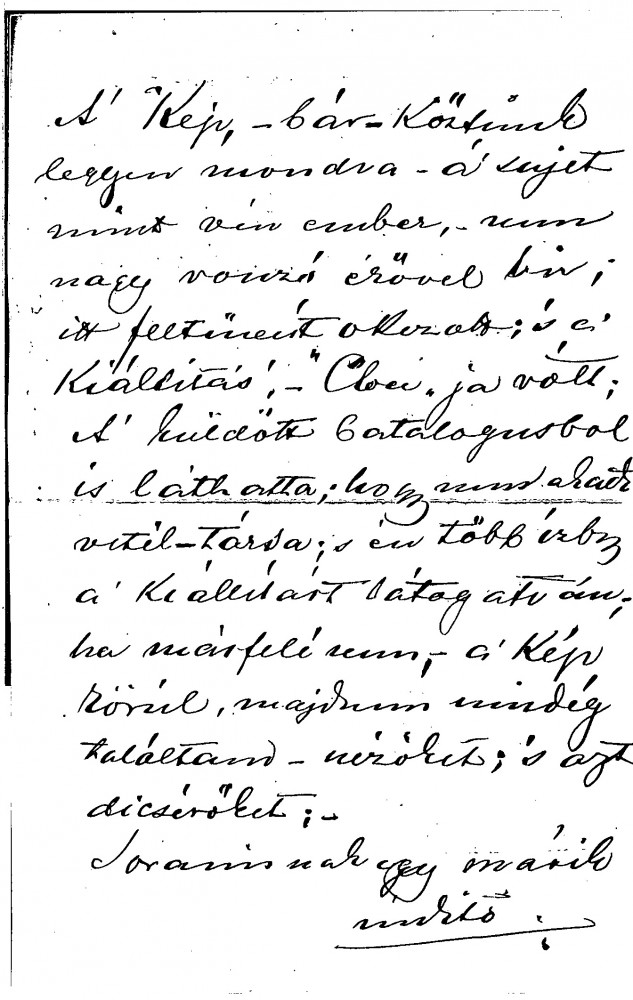 A' Kép, – bár – köztünk
legyen mondva – a' sujet
mint vén ember, – nem
nagy vonzó érővel bír;
itt feltünést okozott; 's a'
Kiállitás', – "Clou„ ja vólt;
A' küldött Catalogusbol
is láthatta; hogy nem akadt
vetél-társa; s én több ízbe
a' Kiállitást látogatván;
ha másfelé nem, – a' Kép
körül, majdnem mindég
találtam – nézőket; 's azt
dicsérőket; –
Soraimnak egy másik
inditó